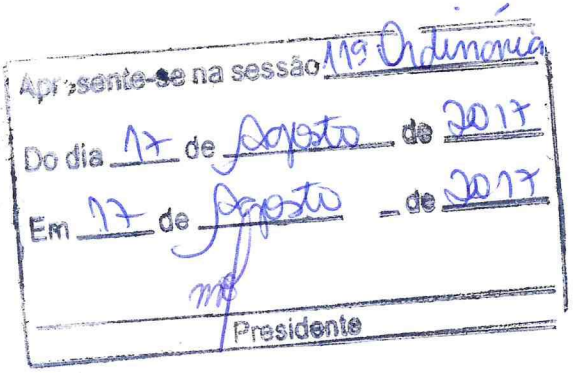 Apresente-se na sessão 119 Ordinária
Do dia 17 de Agosto de 2017
Em 17 de Agosto de 2017
Presidente